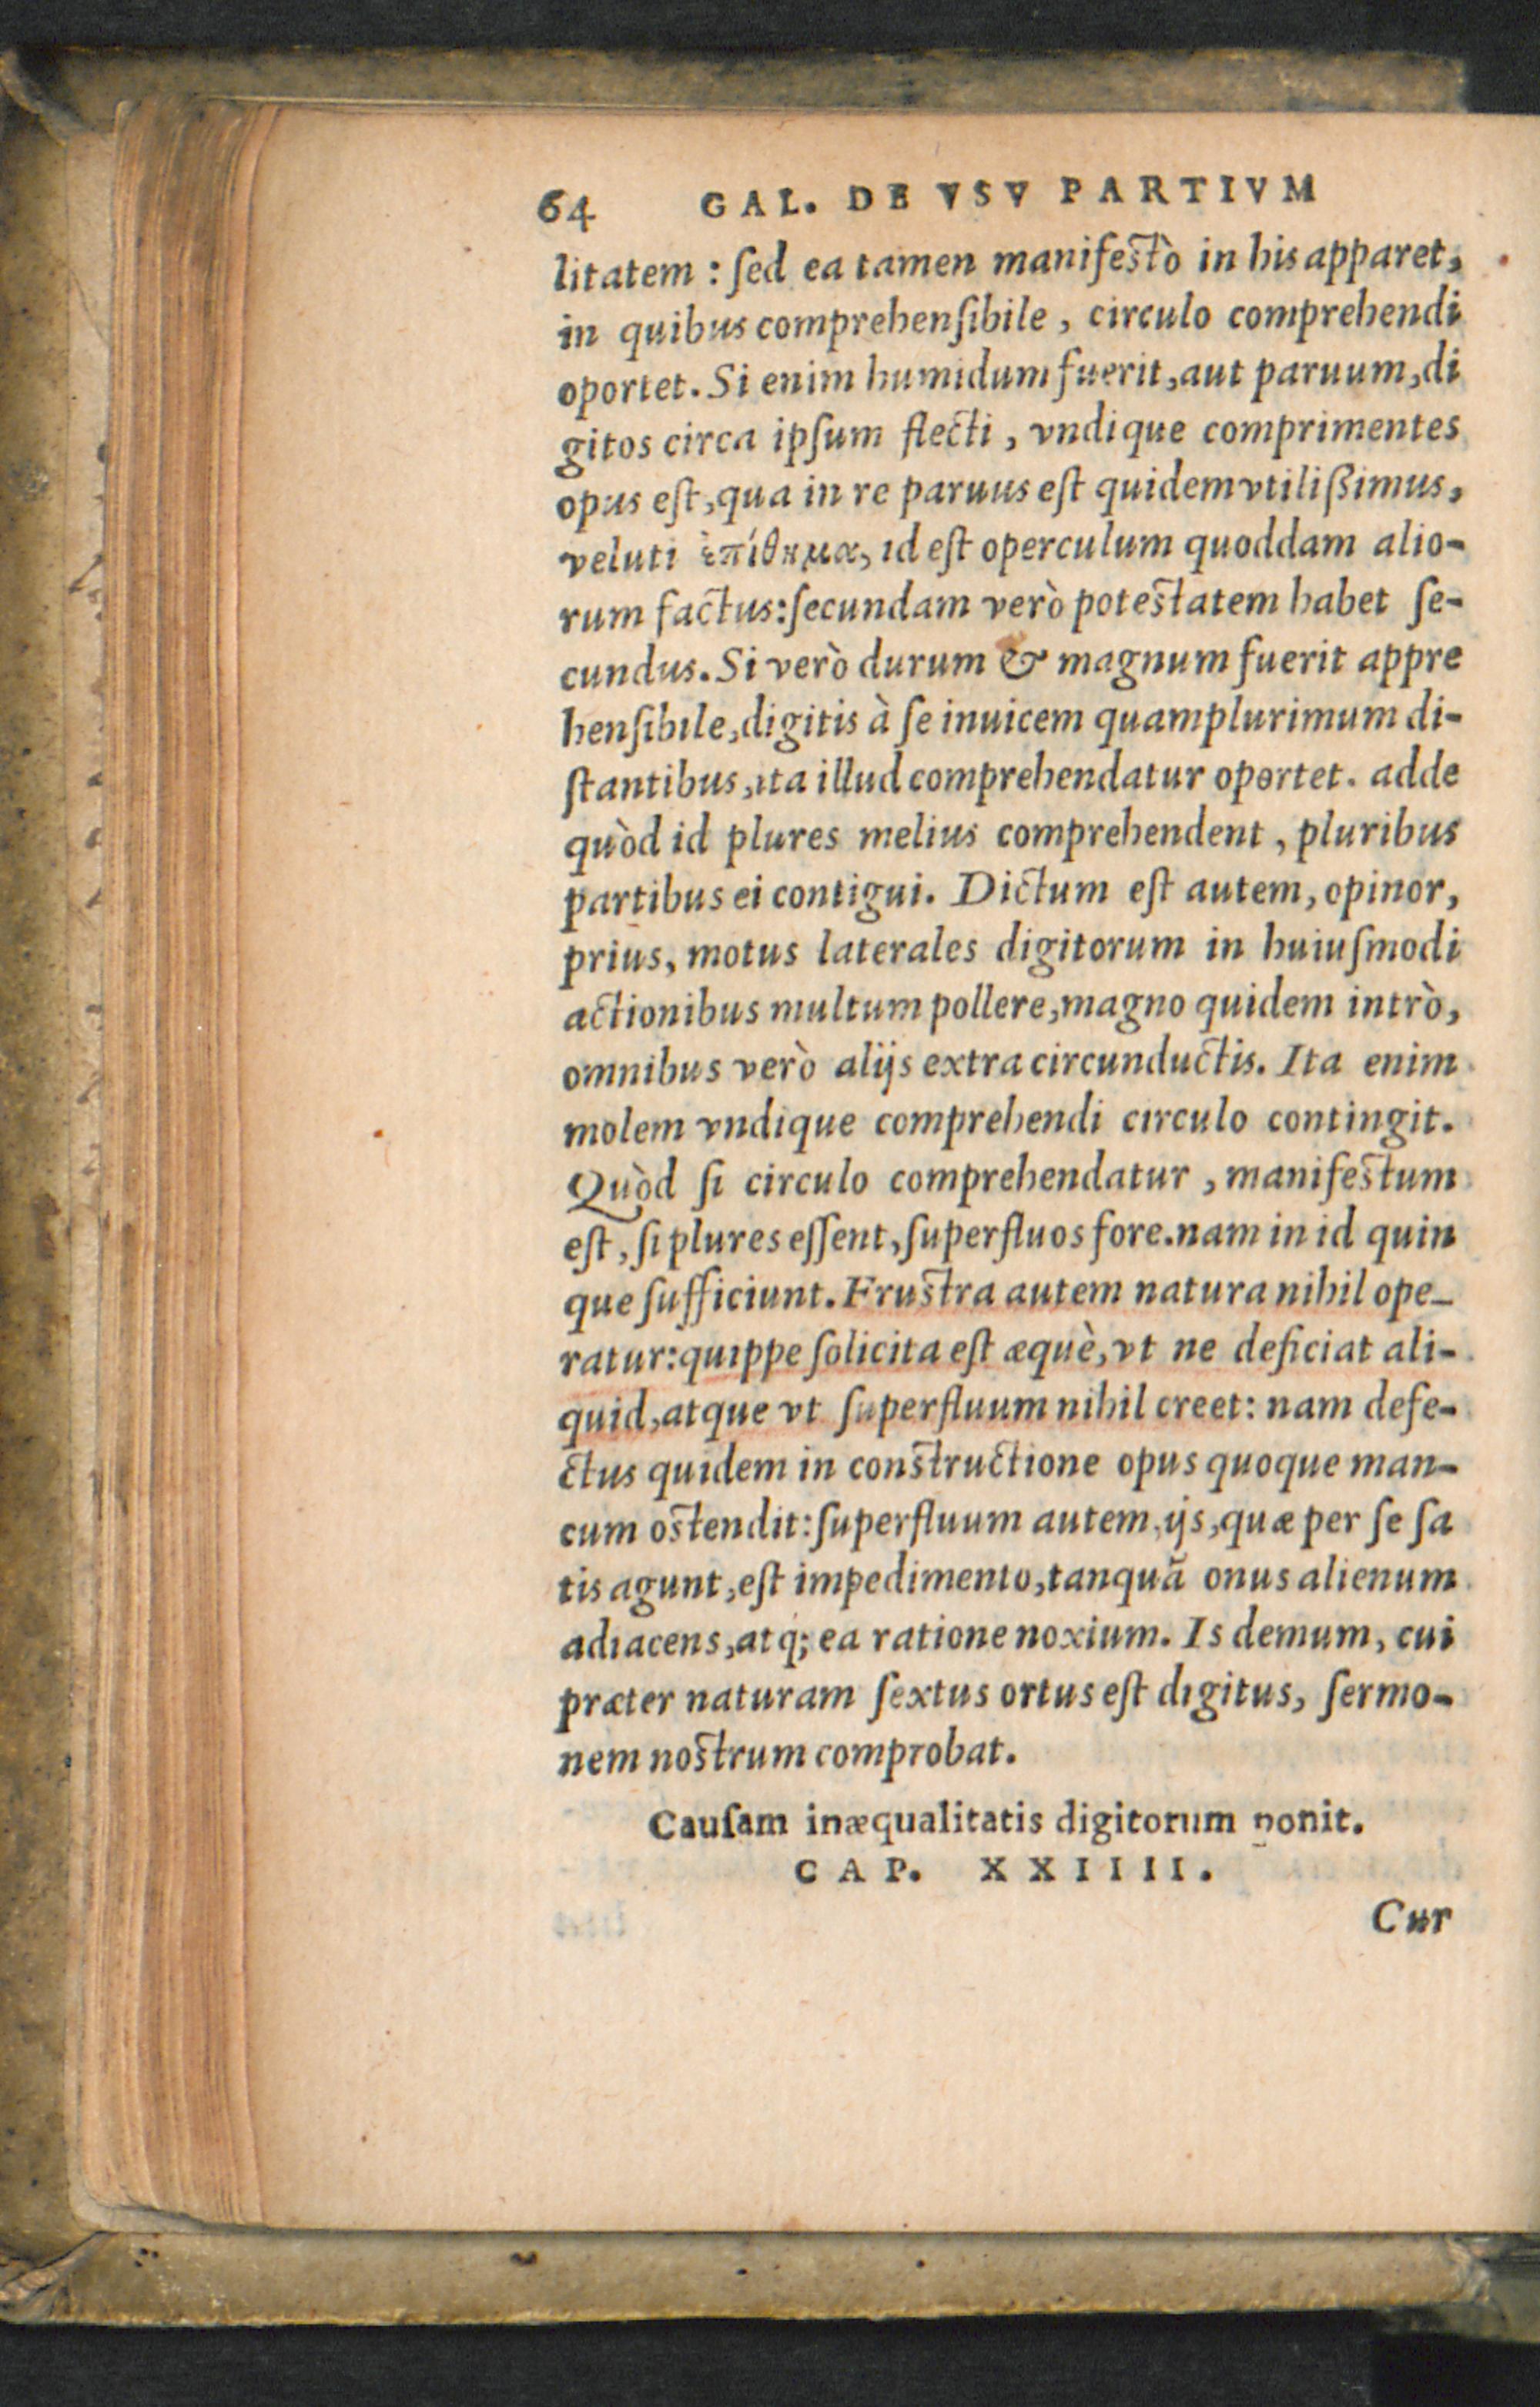 64 GAL. DE VSV PARTIVM
litatem : ſed ea tamen manifestò in his apparet,
in quibus comprehenſibile , circulo comprehendi
oportet. Si enim humidum fuerit, aut paruum, di
gitos circa ipſum flecti , vndique comprimentes
opus eſt, qua in re paruus eſt quidem vtilißimus,
veluti ἐπίθημα, id eſt operculum quoddam alio-
rum factus: ſecundam verò potestatem habet ſe-
cundus. Si verò durum & magnum fuerit appre
henſibile, digitis à ſe inuicem quamplurimum di-
ſtantibus, ita illud comprehendatur oportet. adde
quòd id plures melius comprehendent , pluribus
partibus ei contigui. Dictum eſt autem, opinor,
prius, motus laterales digitorum in huiuſmodi
actionibus multum pollere, magno quidem intrò,
omnibus verò alijs extra circunductis. Ita enim
molem vndique comprehendi circulo contingit.
Quòd ſi circulo comprehendatur , manifestum
eſt, ſi plures eſſent, ſuperfluos fore. nam in id quin
que ſufficiunt. Frustra autem natura nihil ope-
ratur: quippe ſolicita eſt æquè, vt ne deficiat ali-
quid, atque vt ſuperfluum nihil creet: nam defe-
ctus quidem in constructione opus quoque man-
cum ostendit: ſuperfluum autem, ijs, quæ per ſe ſa
tis agunt, eſt impedimento, tanquã onus alienum
adiacens, atq; ea ratione noxium. Is demum, cui
præter naturam ſextus ortus eſt digitus, ſermo-
nem nostrum comprobat.
Cauſam inæqualitatis digitorum ponit.
CAP. XXIIIII.
Cur